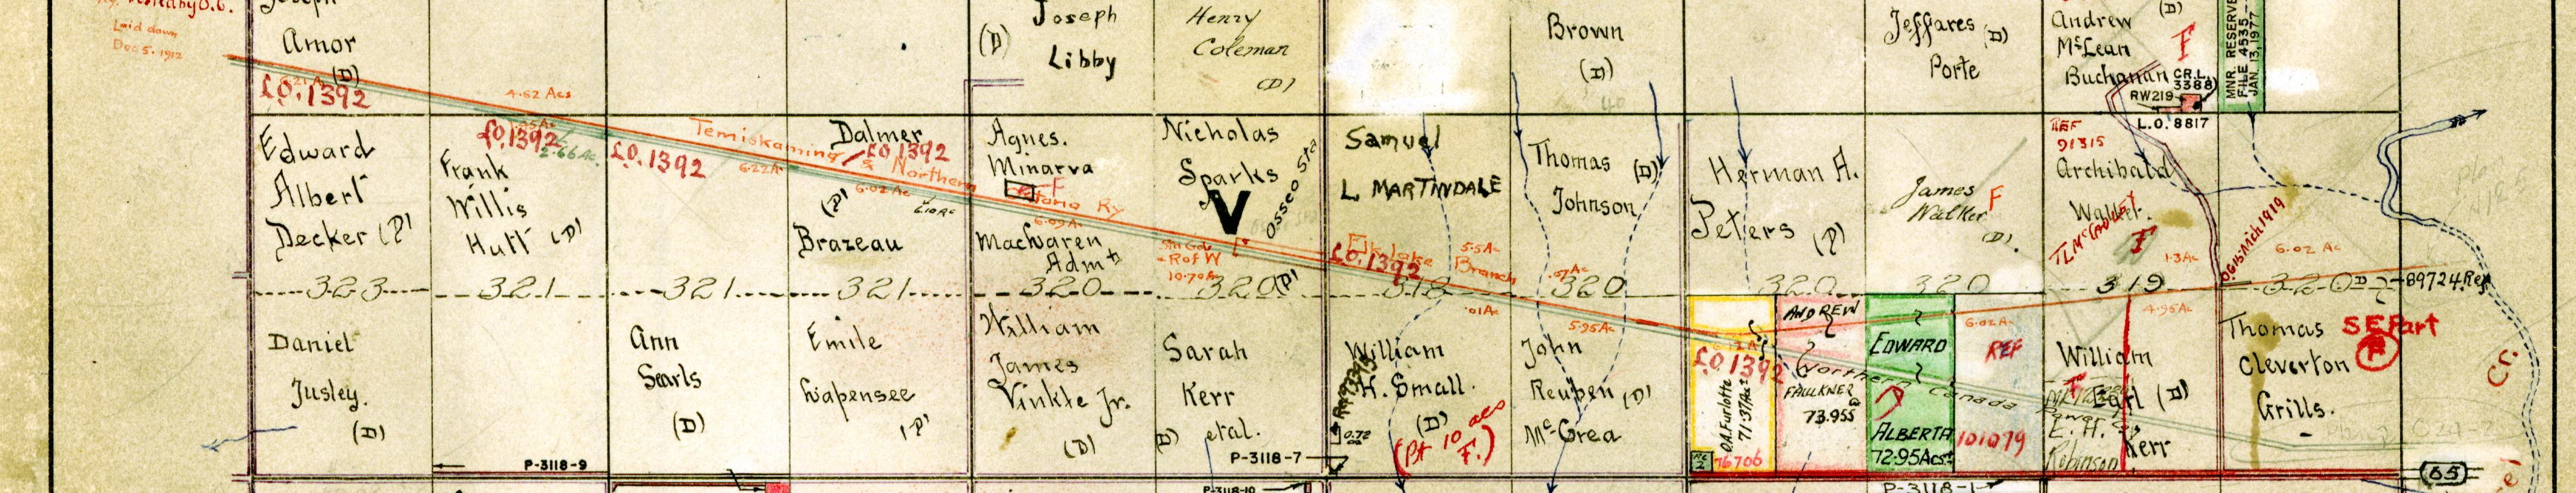 Laid down
Dec 5. 1912
Amor
(D)
£O.1392
Joseph
(D)
Libby
Henry
Coleman
(D)
Brown
(D)
Jeffares (D)
Porte
Andrew (D)
McLean
F
Buchanan
CR.L.
3388
RW219
L.O. 8817
MNR. RESERVE
FILE 4535
JAN. 13, 1977
4.62 Acs
Edward
Albert
Decker (P)
£O.1392
2.66 Ac.
Frank
Willis
Hutt (D)
£O.1392
Temiskaming & Northern
6.22A
Dalmer
£O.1392
(P)
Brazeau
6.02 Ac
Agnes.
Minarva
F
Ry
6.09A
MacLaren
Adm
Nicholas
Sparks
V
Osseo Sta
R of W
10.70A
(P)
Samuel
L. MARTINDALE
Elk lake
Branch
£O.1392
5.5Ac
Thomas (D)
Johnson
.67Ac
Herman A.
Peters (P)
James F
Walker
(D).
REF
91315
Archibald
Walker.
F
1.3A
6.02 Ac
323
321
321
321
320
320
318
320
320
320
319
320
D
89724 Ref
Daniel
Jusley.
(D)
Ann
Searls
(D)
Emile
Lapensee
(P)
William
James
Vinkle Jr.
(D)
Sarah
Kerr
(D) etal.
.01Ac
William
H. Small.
(D)
(Pt 10 acs
F.)
0.72
5.95Ac
John
Reuben (D)
McCrea
£O.1392
O.A. Furlotte
71.37Acs
76706
ANDREW
FAULKNER
73.955
EDWARD
ALBERTA
72.95Acs
Northern Canada
Power
6.02A
REF
101079
4.95Ac
William
F
Earl (D)
E. H.
Robinson
Kerr
Thomas
Cleverton
Grills.
SE Part
F
Cr.
P-3118-9
P-3118-7
P-3118-10
P-3118-1
65